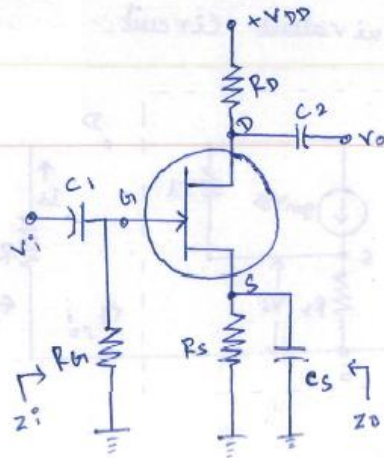 +VDD
RD
D
C2
Vo
C1
G
Vi
S
RG
Rs
Cs
Zi
Zo